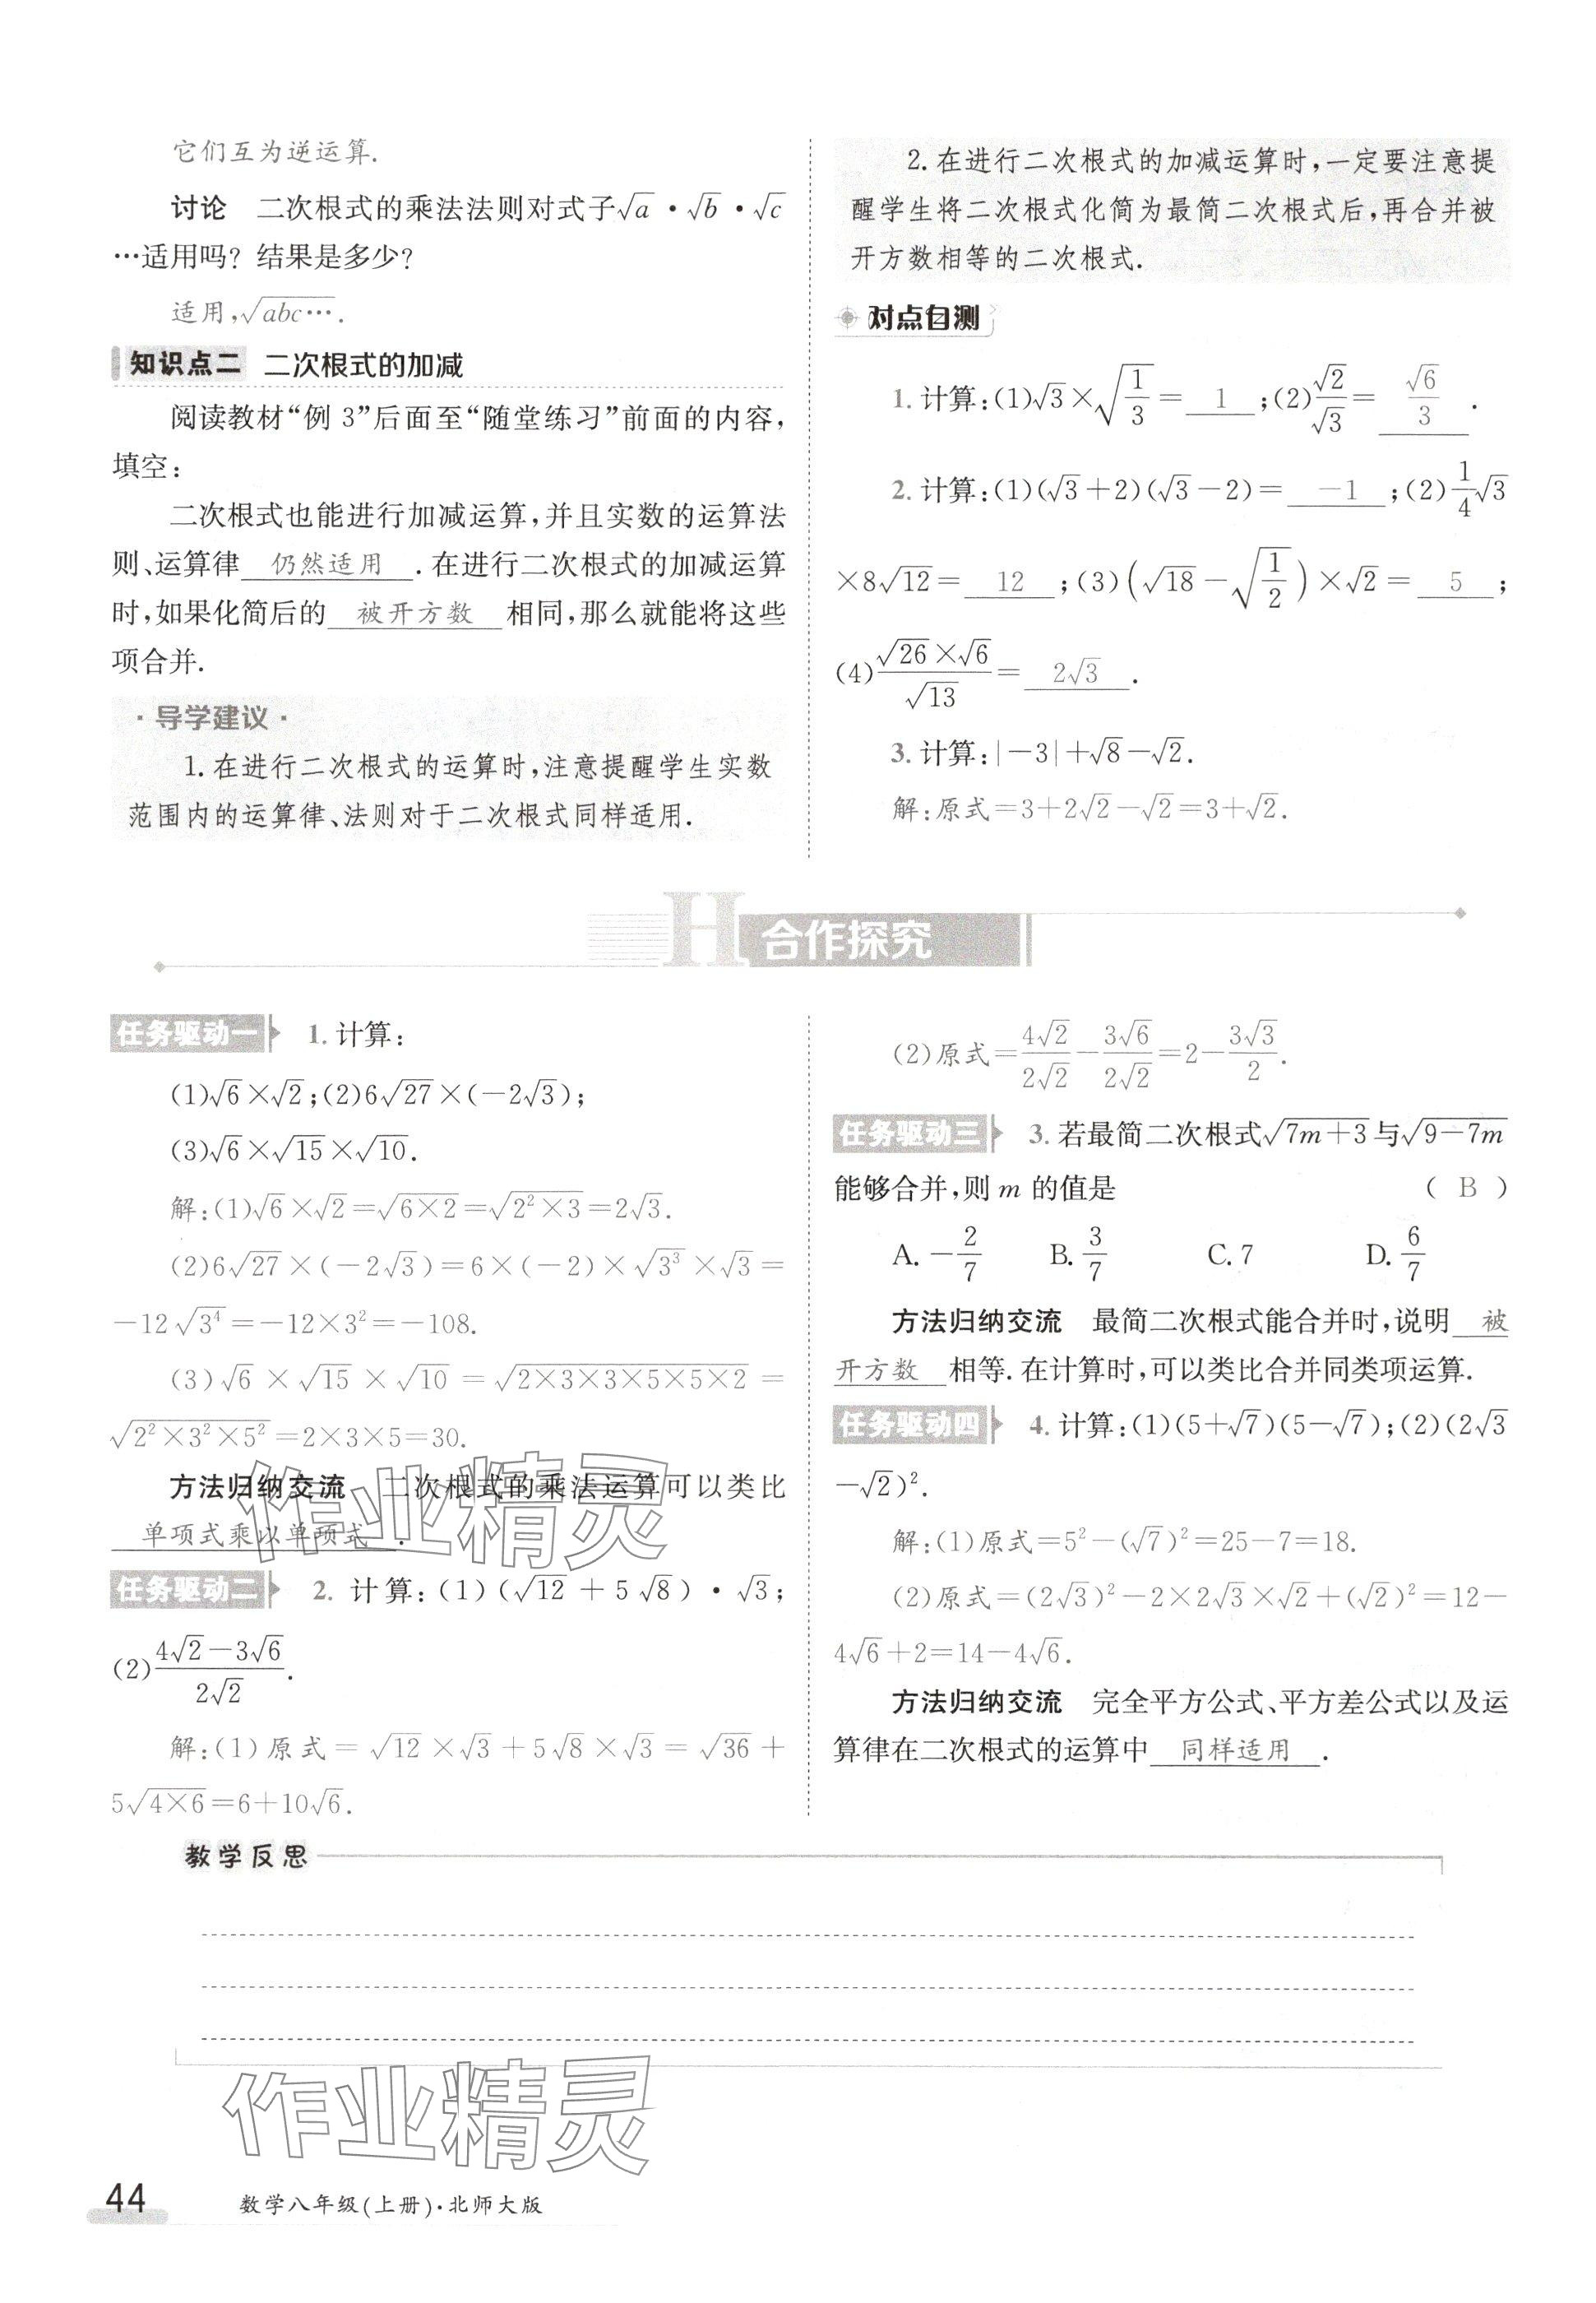 它们互为逆运算.
讨论 二次根式的乘法法则对式子√a·√b·√c
…适用吗? 结果是多少?
适用,√(abc…).
知识点二 二次根式的加减
阅读教材“例 3”后面至“随堂练习”前面的内容,
填空:
二次根式也能进行加减运算,并且实数的运算法
则、运算律 仍然适用 .在进行二次根式的加减运算
时,如果化简后的 被开方数 相同,那么就能将这些
项合并.
·导学建议·
1.在进行二次根式的运算时,注意提醒学生实数
范围内的运算律、法则对于二次根式同样适用.
2.在进行二次根式的加减运算时,一定要注意提
醒学生将二次根式化简为最简二次根式后,再合并被
开方数相等的二次根式.
对点自测
1.计算:(1)√3×√(1/3)= 1 ;(2)√2/√3= √6/3 .
2.计算:(1)(√3+2)(√3-2)= -1 ;(2)1/4√3
×8√12= 12 ;(3)(√18-√(1/2))×√2= 5 ;
(4)(√26×√6)/√13= 2√3 .
3.计算:|-3|+√8-√2.
解:原式=3+2√2-√2=3+√2.
H 合作探究
任务驱动一 1.计算:
(1)√6×√2;(2)6√27×(-2√3);
(3)√6×√15×√10.
解:(1)√6×√2=√(6×2)=√(2²×3)=2√3.
(2)6√27×(-2√3)=6×(-2)×√3³×√3=
-12√3⁴=-12×3²=-108.
(3)√6×√15×√10=√(2×3×3×5×5×2)=
√(2²×3²×5²)=2×3×5=30.
方法归纳交流 二次根式的乘法运算可以类比
单项式乘以单项式 .
任务驱动二 2. 计算:(1)(√12+5√8)·√3;
(2)(4√2-3√6)/(2√2).
解:(1)原式=√12×√3+5√8×√3=√36+
5√(4×6)=6+10√6.
(2)原式=4√2/2√2-3√6/2√2=2-3√3/2.
任务驱动三 3.若最简二次根式√(7m+3)与√(9-7m)
能够合并,则 m 的值是 ( B )
A.-2/7 B.3/7 C.7 D.6/7
方法归纳交流 最简二次根式能合并时,说明 被
开方数 相等.在计算时,可以类比合并同类项运算.
任务驱动四 4.计算:(1)(5+√7)(5-√7);(2)(2√3
-√2)².
解:(1)原式=5²-(√7)²=25-7=18.
(2)原式=(2√3)²-2×2√3×√2+(√2)²=12-
4√6+2=14-4√6.
方法归纳交流 完全平方公式、平方差公式以及运
算律在二次根式的运算中 同样适用 .
作业精灵
教学反思
作业精灵
44
数学八年级(上册)·北师大版